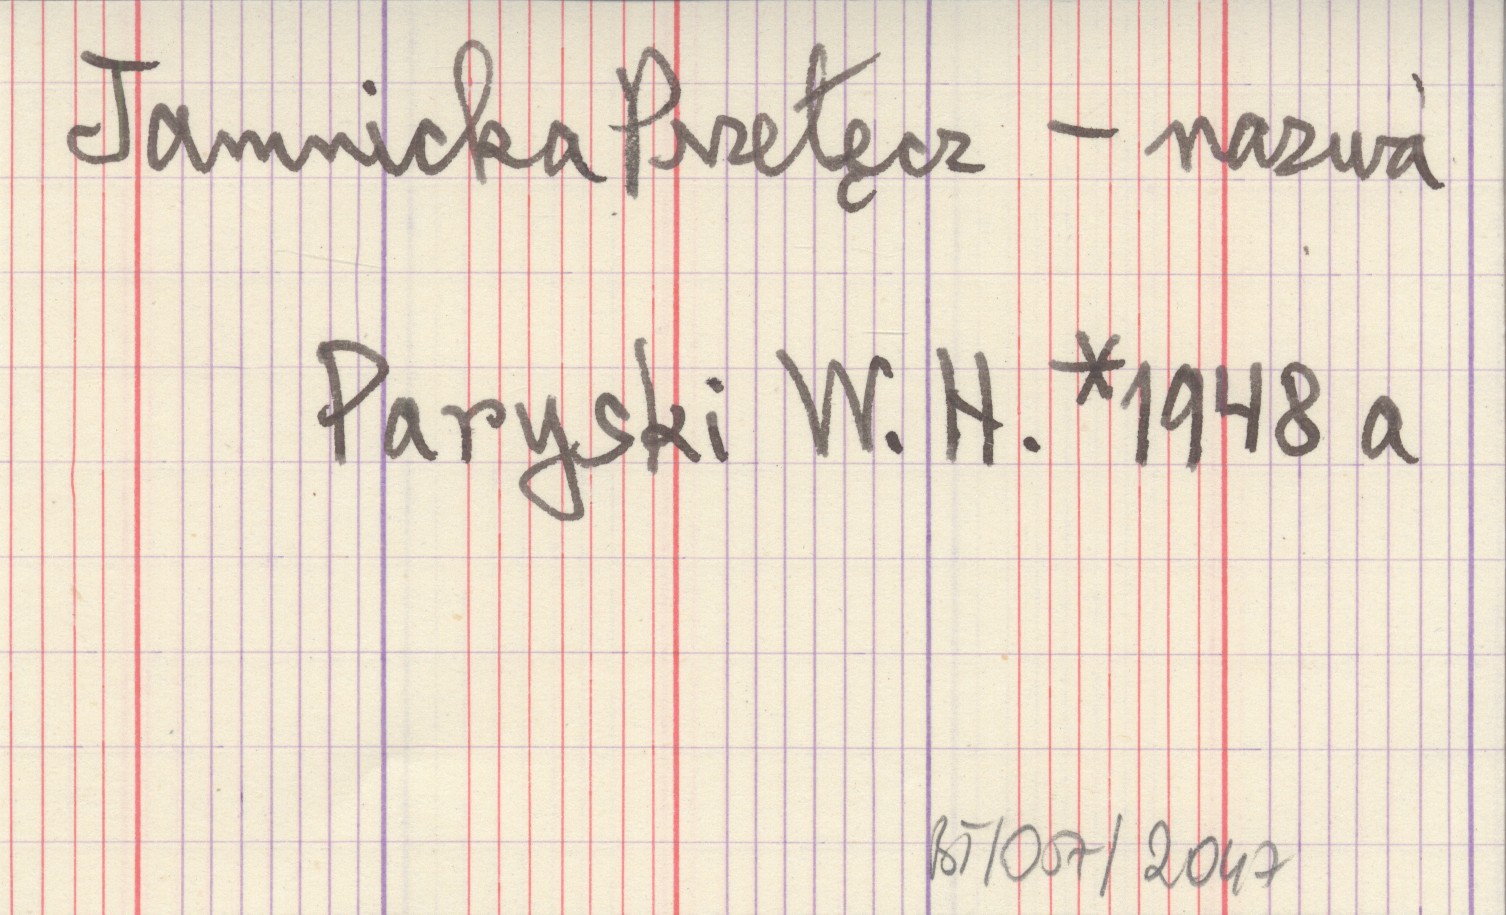 Jamnicka Przełęcz – nazwa
Paryski W. H. *1948 a
BT/057/2047